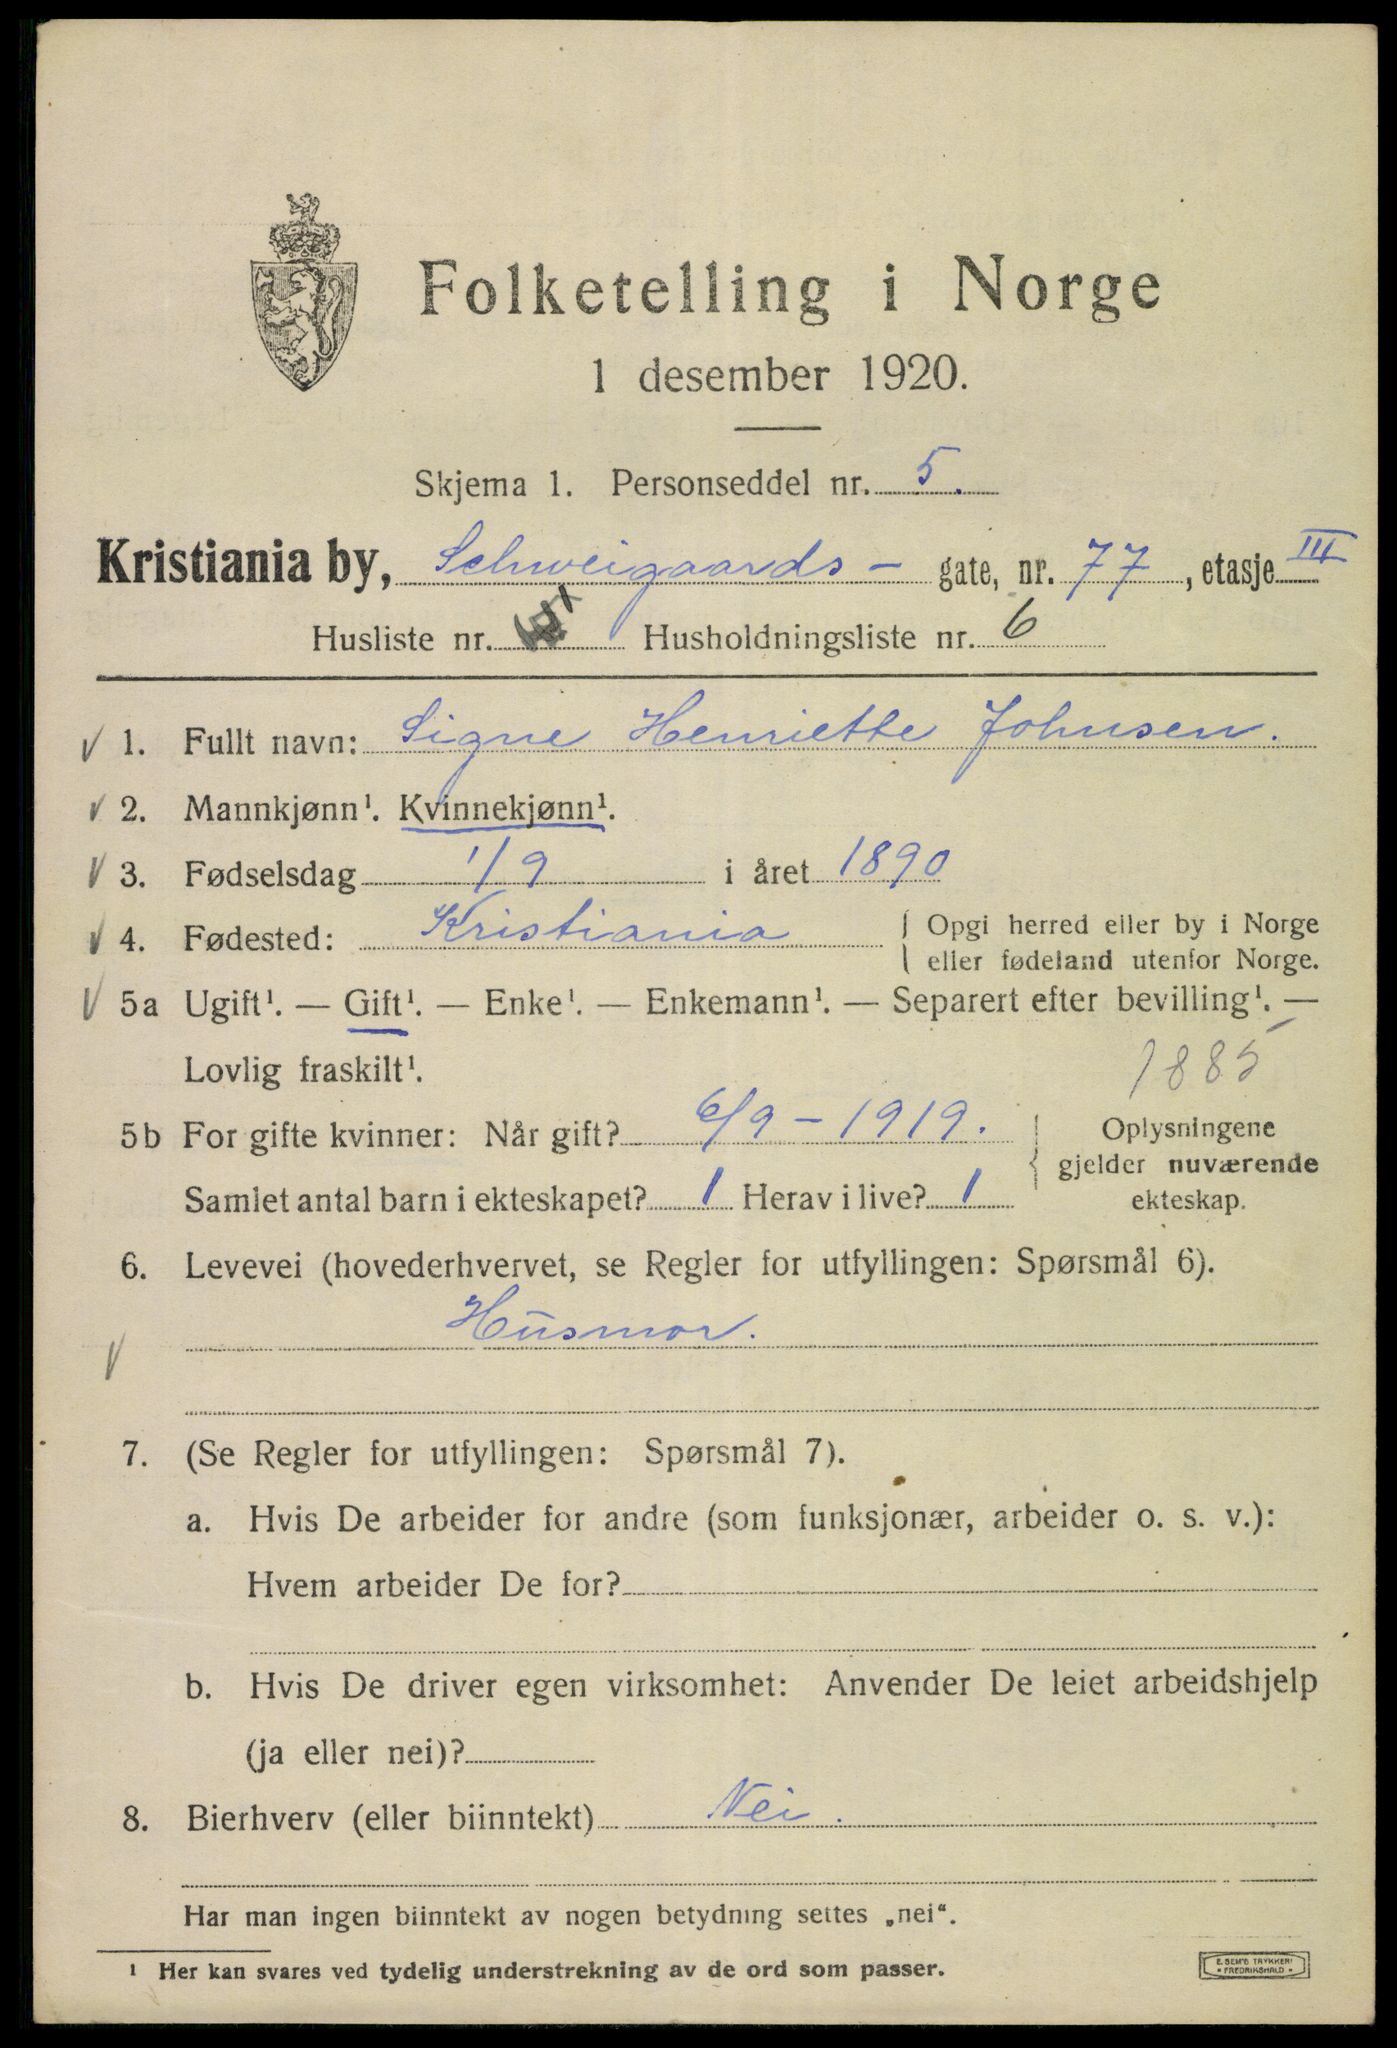 Folketelling i Norge
1 desember 1920.
Skjema 1. Personseddel nr. 5.
Kristiania by, Schweigaards - gate, nr. 77, etasje III
Husliste nr. Husholdningsliste nr. 6
1. Fullt navn: Signe Henriette Johnsen.
2. Mannkjønn¹. Kvinnekjønn¹.
3. Fødselsdag 1/9 i året 1890
4. Fødested: Kristiania { Opgi herred eller by i Norge
eller fødeland utenfor Norge.
5a Ugift¹. — Gift¹. — Enke¹. — Enkemann¹. — Separert efter bevilling¹. —
Lovlig fraskilt¹.
1885
5b For gifte kvinner: Når gift? 6/9 - 1919. { Oplysningene
gjelder nuværende
Samlet antal barn i ekteskapet? 1 Herav i live? 1 ekteskap.
6. Levevei (hovederhvervet, se Regler for utfyllingen: Spørsmål 6).
Husmor.
7. (Se Regler for utfyllingen: Spørsmål 7).
a. Hvis De arbeider for andre (som funksjonær, arbeider o. s. v.):
Hvem arbeider De for?
b. Hvis De driver egen virksomhet: Anvender De leiet arbeidshjelp
(ja eller nei)?
8. Bierhverv (eller biinntekt) Nei.
Har man ingen biinntekt av nogen betydning settes „nei“.
¹ Her kan svares ved tydelig understrekning av de ord som passer.
E. SEM'S TRYKKERI
• FREDRIKSHALD •